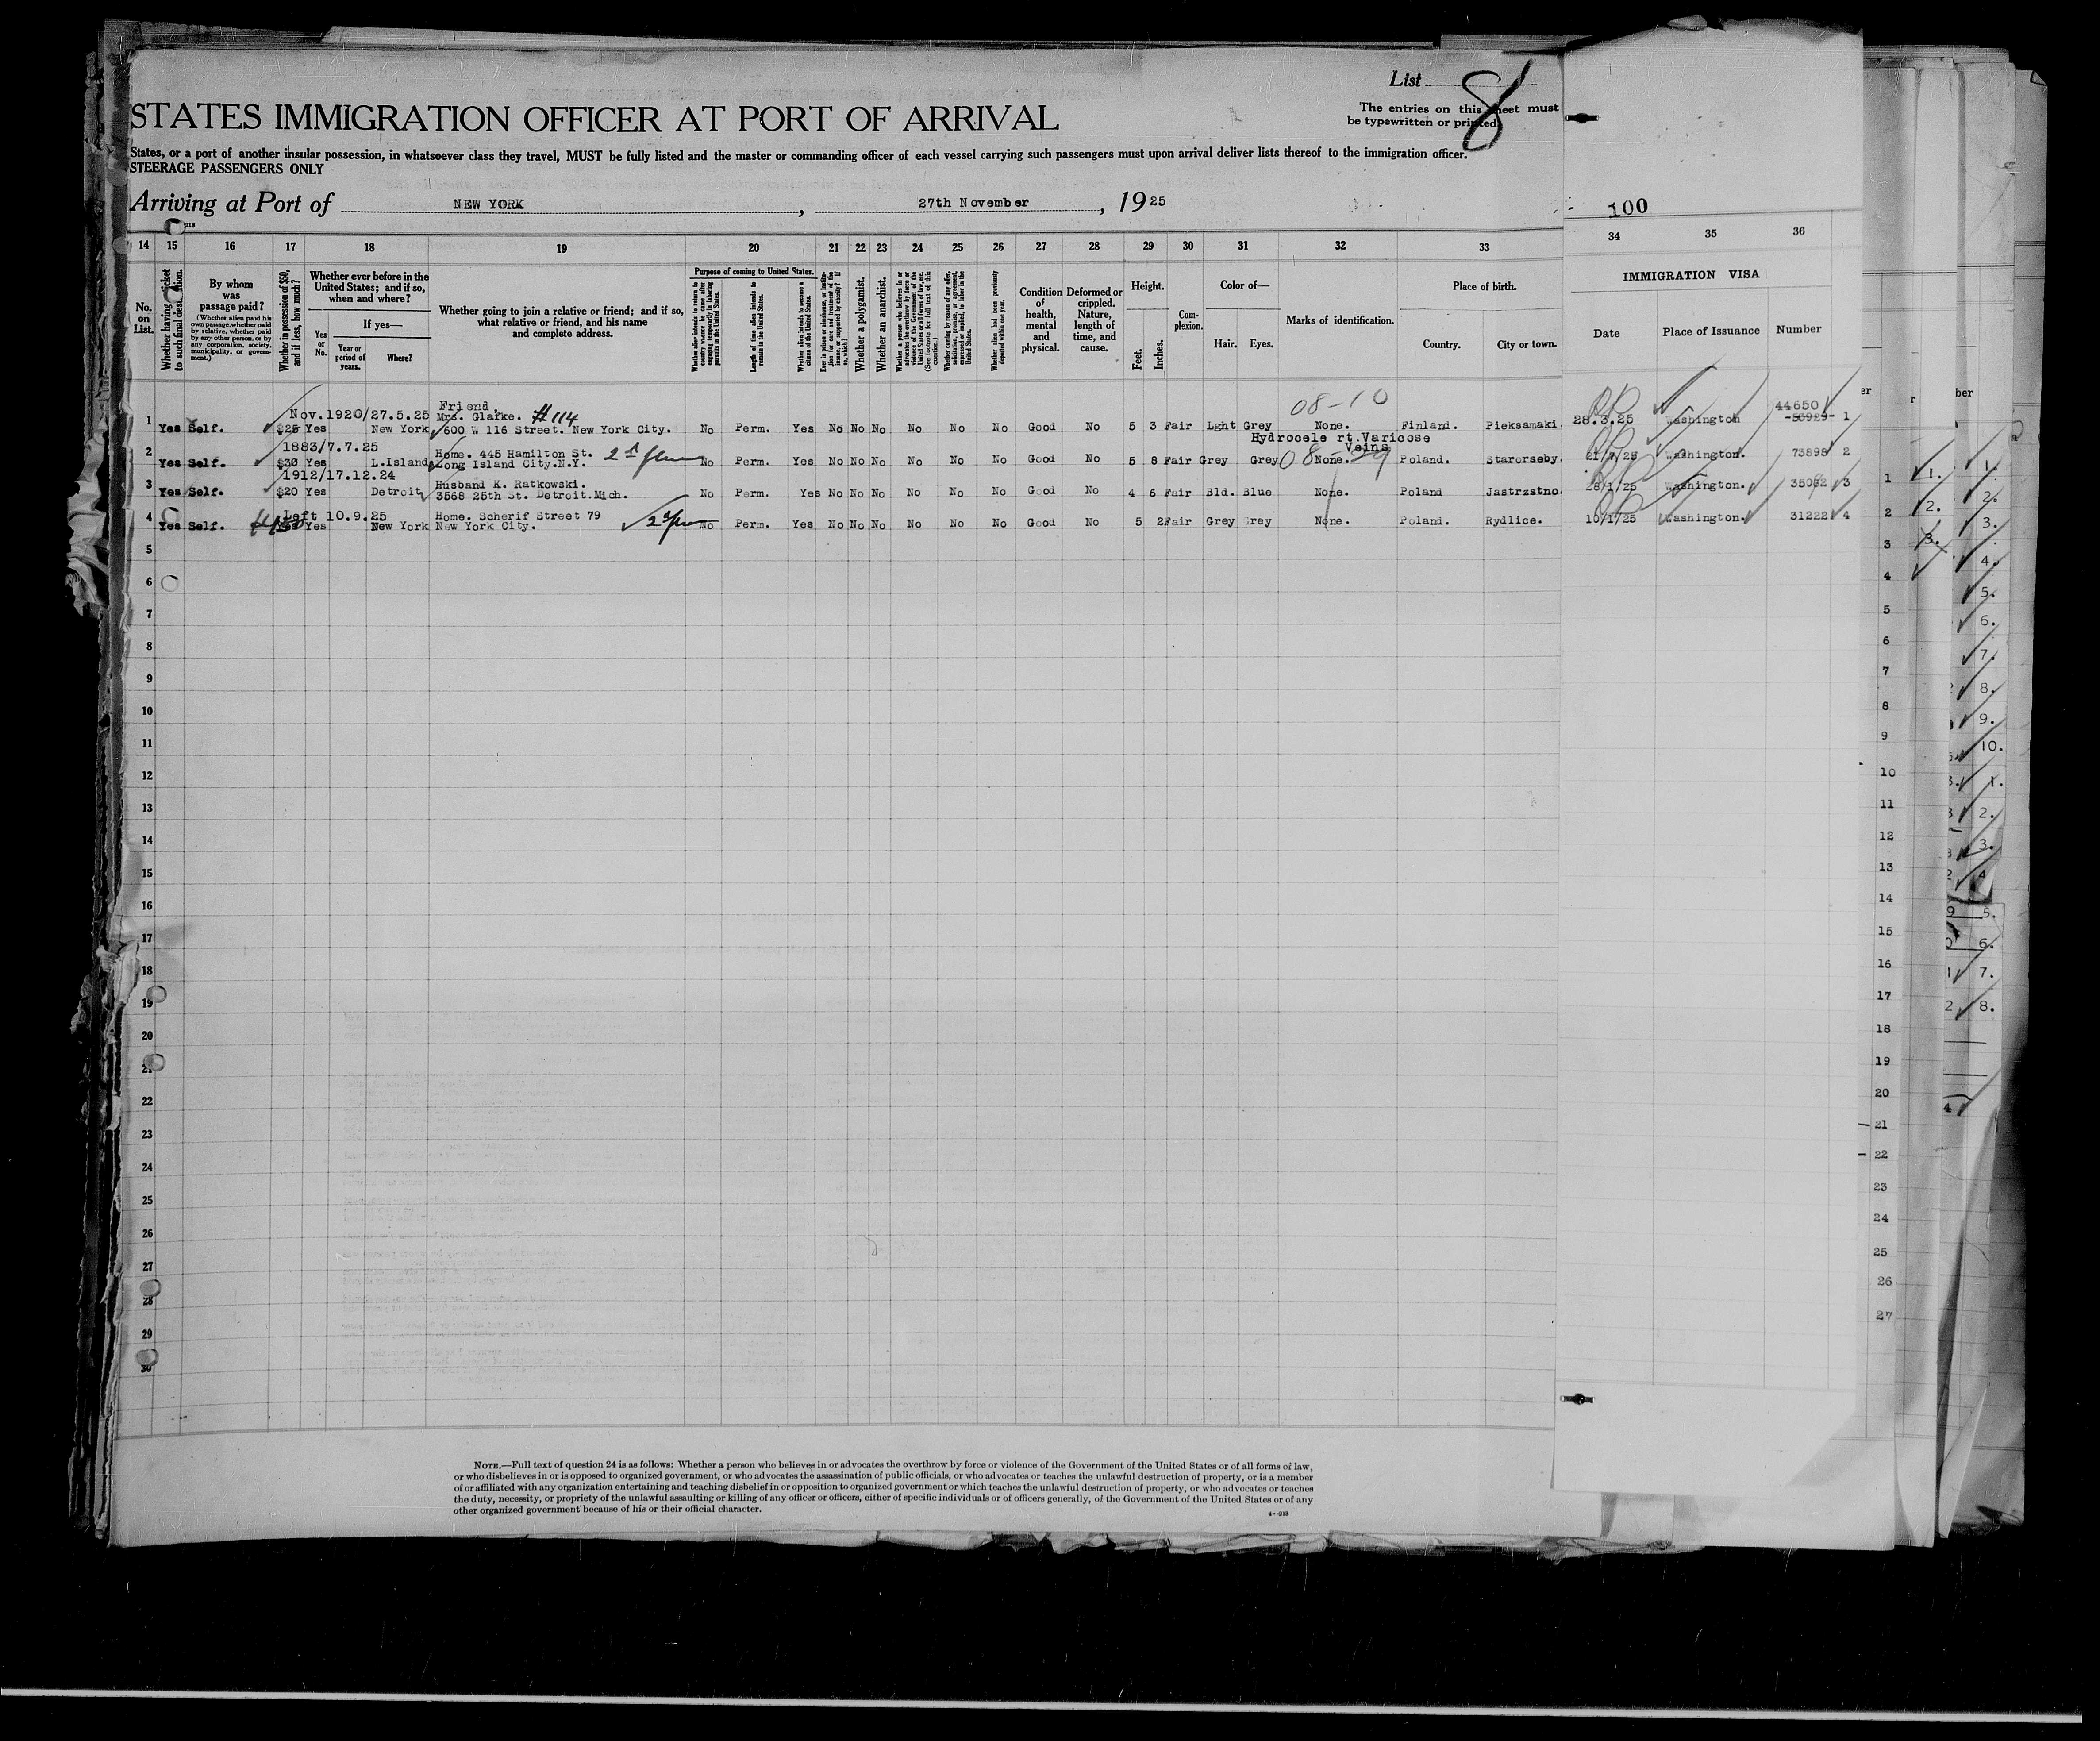 List 8
STATES IMMIGRATION OFFICER AT PORT OF ARRIVAL
The entries on this sheet must
be typewritten or printed
States, or a port of another insular possession, in whatsoever class they travel, MUST be fully listed and the master or commanding officer of each vessel carrying such passengers must upon arrival deliver lists thereof to the immigration officer.
STEERAGE PASSENGERS ONLY
Arriving at Port of NEW YORK, 27th November, 1925
100
14 15 16 17 18 19 20 21 22 23 24 25 26 27 28 29 30 31 32 33 34 35 36
No. on List.
Whether having a ticket to such final destination.
By whom was passage paid?
(Whether alien paid his own passage, whether paid by relative, whether paid by any other person, or by any corporation, society, municipality, or government.)
Whether in possession of $50, and if less, how much?
Whether ever before in the United States; and if so, when and where?
Yes or No.
If yes—
Year or period of years.
Where?
Whether going to join a relative or friend; and if so, what relative or friend, and his name and complete address.
Purpose of coming to United States.
Length of time alien intends to remain in the United States.
Whether alien intends to become a citizen of the United States.
Whether a polygamist.
Whether an anarchist.
Whether alien had been previously deported within one year.
Condition of health, mental and physical.
Deformed or crippled. Nature, length of time, and cause.
Height.
Feet. Inches.
Complexion.
Color of—
Hair. Eyes.
Marks of identification.
Place of birth.
Country. City or town.
IMMIGRATION VISA
Date Place of Issuance Number
Nov.1920/27.5.25 Friend, 08-10 44650
1 Yes Self. $25 Yes New York Mrs. Glarke. #114
600 W 116 Street. New York City. No Perm. Yes No No No No No No Good No 5 3 Fair Lght Grey None. Finland. Pieksamaki. 28.3.25 Washington 1
1883/7.7.25 Hydrocele rt.Varicose Veins
2 Yes Self. $30 Yes L.Island Home. 445 Hamilton St.
Long Island City.N.Y. No Perm. Yes No No No No No No Good No 5 8 Fair Grey Grey None. Poland. Starorseby. 21/7/25 Washington. 73898 2
1912/17.12.24
3 Yes Self. $20 Yes Detroit Husband K. Ratkowski.
3568 25th St. Detroit.Mich. No Perm. Yes No No No No No No Good No 4 6 Fair Bld. Blue None. Poland Jastrzstno. 28/1/25 Washington. 35082 3
Left 10.9.25
4 Yes Self. Yes New York Home. Scherif Street 79
New York City. No Perm. Yes No No No No No No Good No 5 2 Fair Grey Grey None. Poland. Rydlice. 10/1/25 Washington. 31222 4
5
6
7
8
9
10
11
12
13
14
15
16
17
18
19
20
21
22
23
24
25
26
27
28
29
30
NOTE.—Full text of question 24 is as follows: Whether a person who believes in or advocates the overthrow by force or violence of the Government of the United States or of all forms of law,
or who disbelieves in or is opposed to organized government, or who advocates the assassination of public officials, or who advocates or teaches the unlawful destruction of property, or is a member
of or affiliated with any organization entertaining and teaching disbelief in or opposition to organized government or which teaches the unlawful destruction of property, or who advocates or teaches
the duty, necessity, or propriety of the unlawful assaulting or killing of any officer or officers, either of specific individuals or of officers generally, of the Government of the United States or of any
other organized government because of his or their official character.